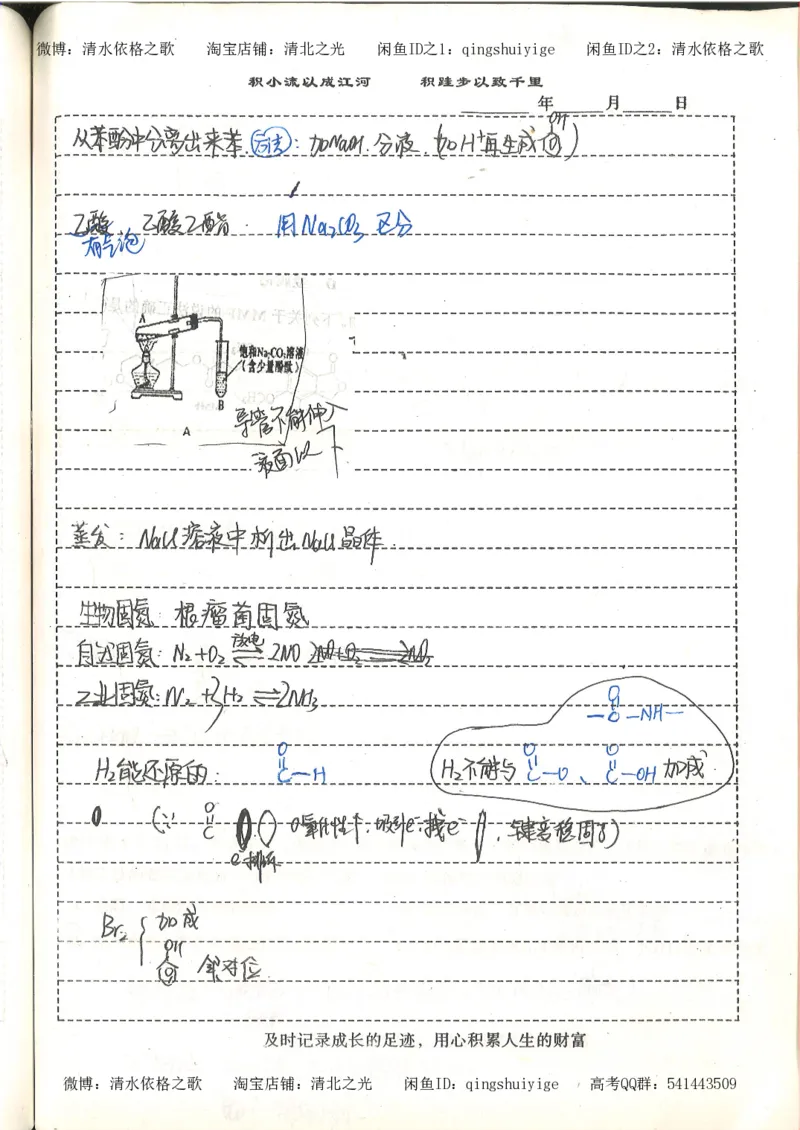 微博：清水依格之歌 淘宝店铺：清北之光 闲鱼ID之1：qingshuiyige 闲鱼ID之2：清水依格之歌
积小流以成江河 积跬步以致千里
年 月 日
从苯酚中分离出来苯.方法：加NaOH.分液.(加H⁺再生成 OH)
乙酸 乙酸乙酯. 用Na₂CO₃区分
有气泡
A
饱和Na₂CO₃溶液
(含少量酚酞)
B
导管不能伸入
A
液面以下
蒸发：NaCl溶液中析出NaCl晶体.
生物固氮：根瘤菌固氮
自然固氮：N₂+O₂ 放电 ⇌ 2NO
工业固氮：N₂+3H₂⇌2NH₃
O
—C—NH—
H₂能还原的： O=C—H
H₂不能与 O=C—O、O=C—OH 加成.
O=C O氧化性个.吸引e⁻.
.键变稳固了)
Br₂ { 加成
OH 邻对位.
及时记录成长的足迹，用心积累人生的财富
微博：清水依格之歌 淘宝店铺：清北之光 闲鱼ID：qingshuiyige 高考QQ群：541443509